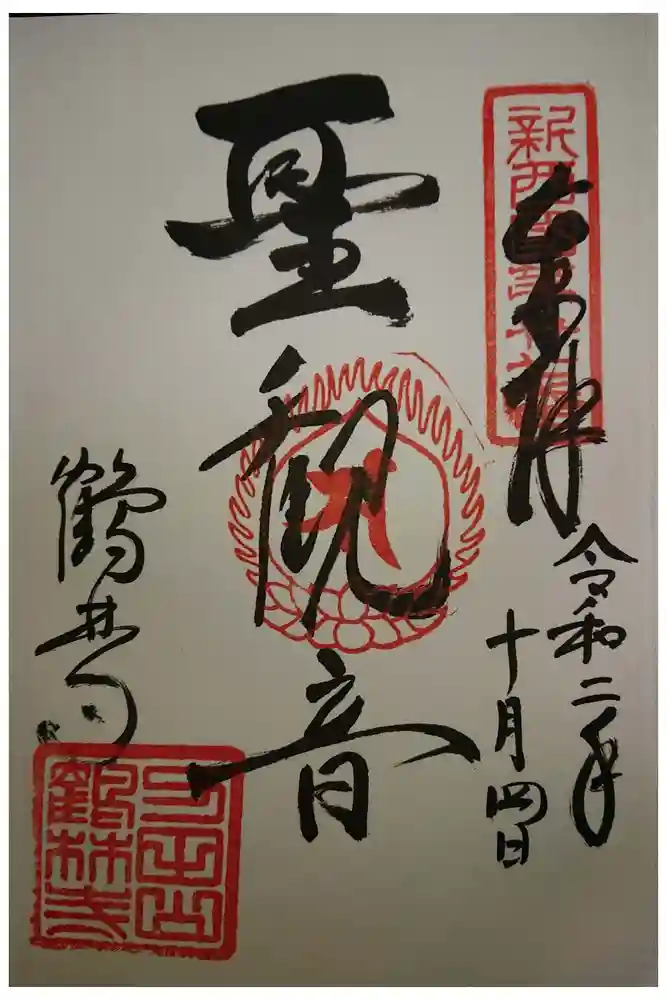 新西国
奉拝
令和二年
十月四日
聖観音
鶴林寺
刀田山
鶴林寺